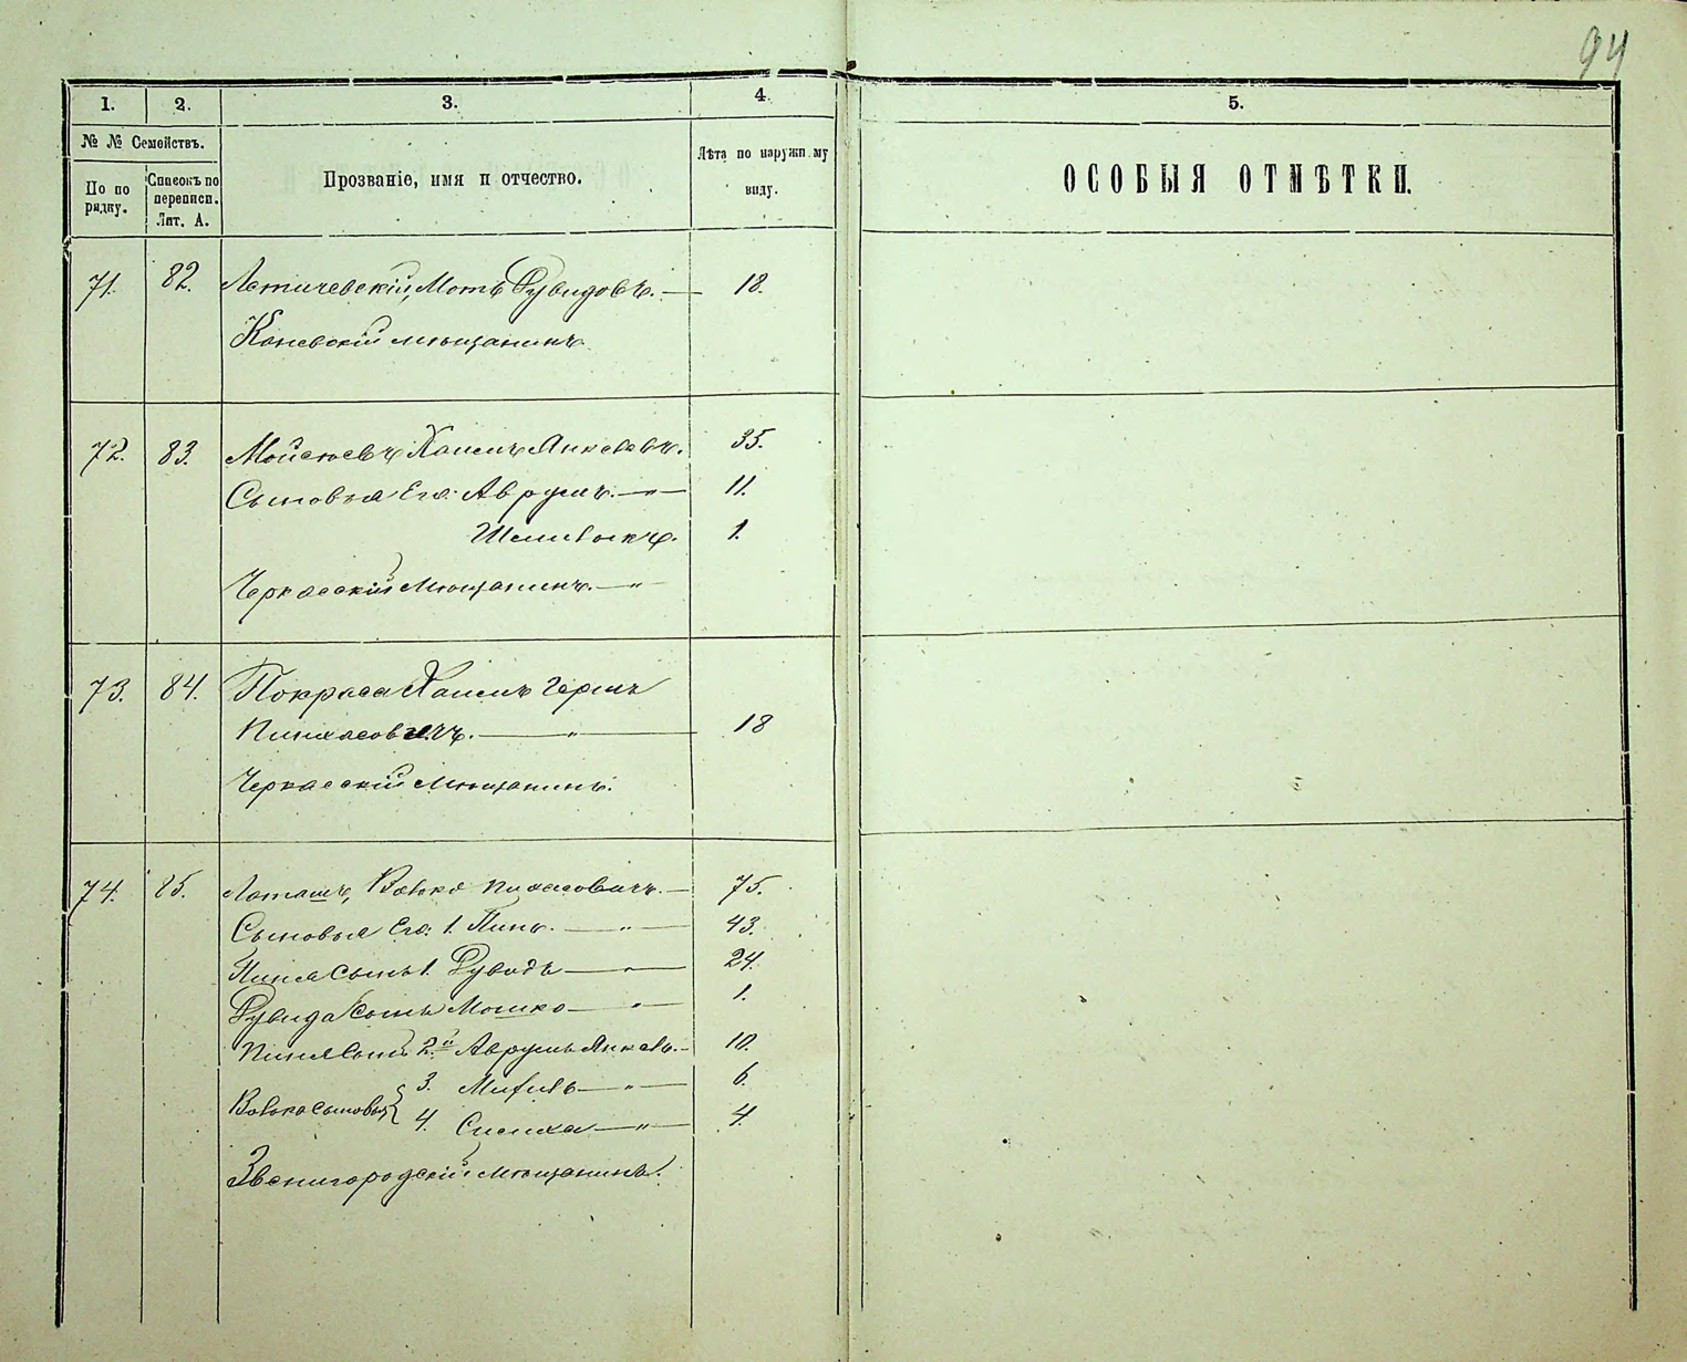 94
1. 2. 3. 4. 5.
№ № Семействъ.
По по
рядку.
Списокъ по
переписи.
Лит. А.
Прозваніе, имя и отчество.
Лѣта по наружн му
виду.
ОСОБЫЯ ОТМѢТКИ.
71. 82. Летичевскій, Моть Рувидовъ. — 18.
Каневскій мѣщанинъ
72. 83. Мойсюевъ Хаимъ Янкелевъ. 35.
Сыновья Его: Аврумъ. — " — 11.
1.
Черкасский Мѣщанинъ. — "
73. 84. Покраса Хаимъ Герш
Пинхасовичъ. — " — 18
Черкасскій Мѣщанинъ.
74. 85. Лоташъ, Волько Пихасовичъ. — 75.
Сыновья Его: 1. Пинь. — " — 43.
Пиня Сынъ 1. Рувидъ — " — 24.
Рувида Сынъ Мошко — " 1.
Пиня Сынъ 2й Аврумъ Янкель. — 10.
Волька сыновья 3. — " — 6.
4. Симха — " — 4.
Звенигородскій Мѣщанинъ.